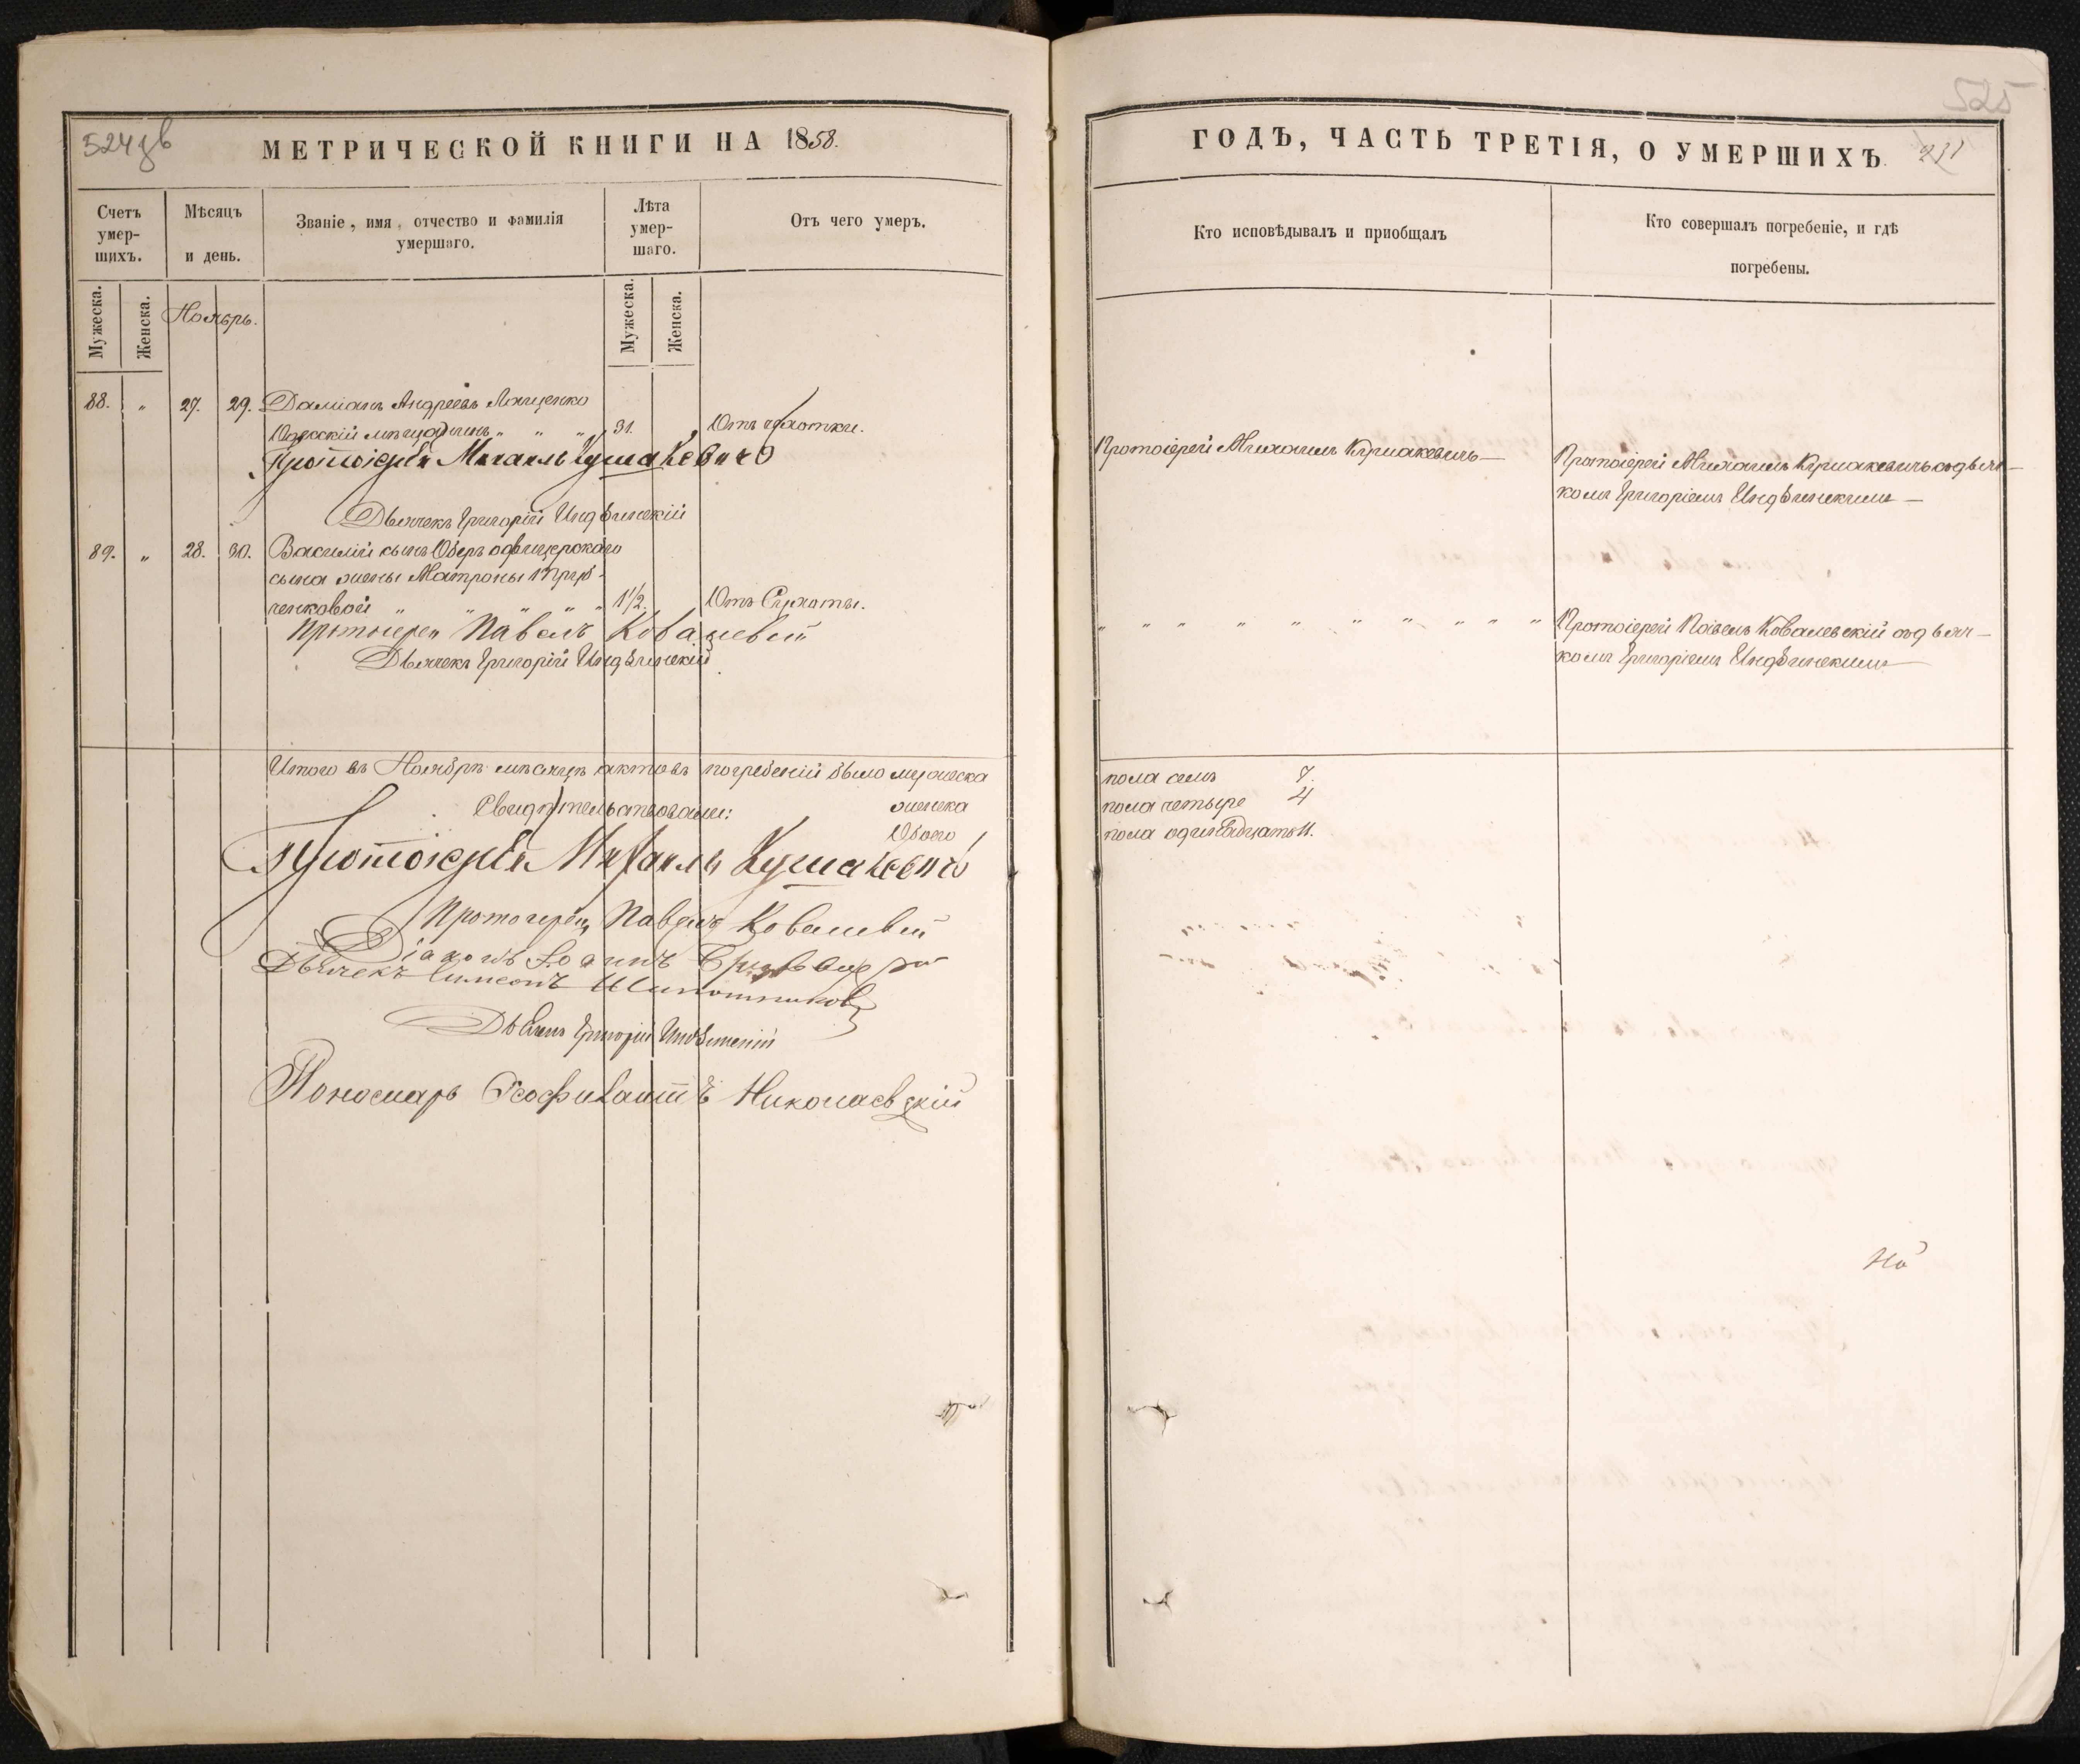 524 зв
МЕТРИЧЕСКОЙ КНИГИ НА 1858.
Счетъ умер-шихъ.
Мѣсяцъ и день.
Званіе, имя, отчество и фамилія умершаго.
Лѣта умер-шаго.
Отъ чего умеръ.
Мужеска.
Женска.
Ноябрь.
Мужеска.
Женска.
88. „ 27. 29. Даміанъ Андреевъ
Одесскій мѣщанинъ „ „ „ 31. „ Отъ чахотки.
Протоіерей Михаилъ Кушакевичъ
Дьячекъ Григорій
89. „ 28. 30. Василій сынъ Оберъ офицерскаго
сына жены Матроны
ченковой „ „ „ „ „ 1½. Отъ Сухоты.
Протоіерей Павелъ Ковалевскій
Дьячекъ Григорій
Итого въ Ноябрѣ мѣсяцѣ актовъ погребеній было мужеска
Свидѣтельствовали: женска
Обоего
Протоіерей Михаилъ Кушакевичъ
Протоіерей Павелъ Ковалевскій
Діаконъ Іоаннъ
Дьячекъ Симеонъ
Дьячекъ Григорій
Пономарь Николаевскій
525
ГОДЪ, ЧАСТЬ ТРЕТІЯ, О УМЕРШИХЪ
231
Кто исповѣдывалъ и приобщалъ
Кто совершалъ погребеніе, и гдѣ
погребены.
Протоіерей Михаилъ Кушакевичъ —
Протоіерей Михаилъ Кушакевичъ съ дьяч—
комъ Григоріемъ
„ „ „ „ „ „ „ „ „ „
Протоіерей Павелъ Ковалевскій съ дьяч—
комъ Григоріемъ
пола семь 7.
пола четыре 4
пола одинадцать 11.
На